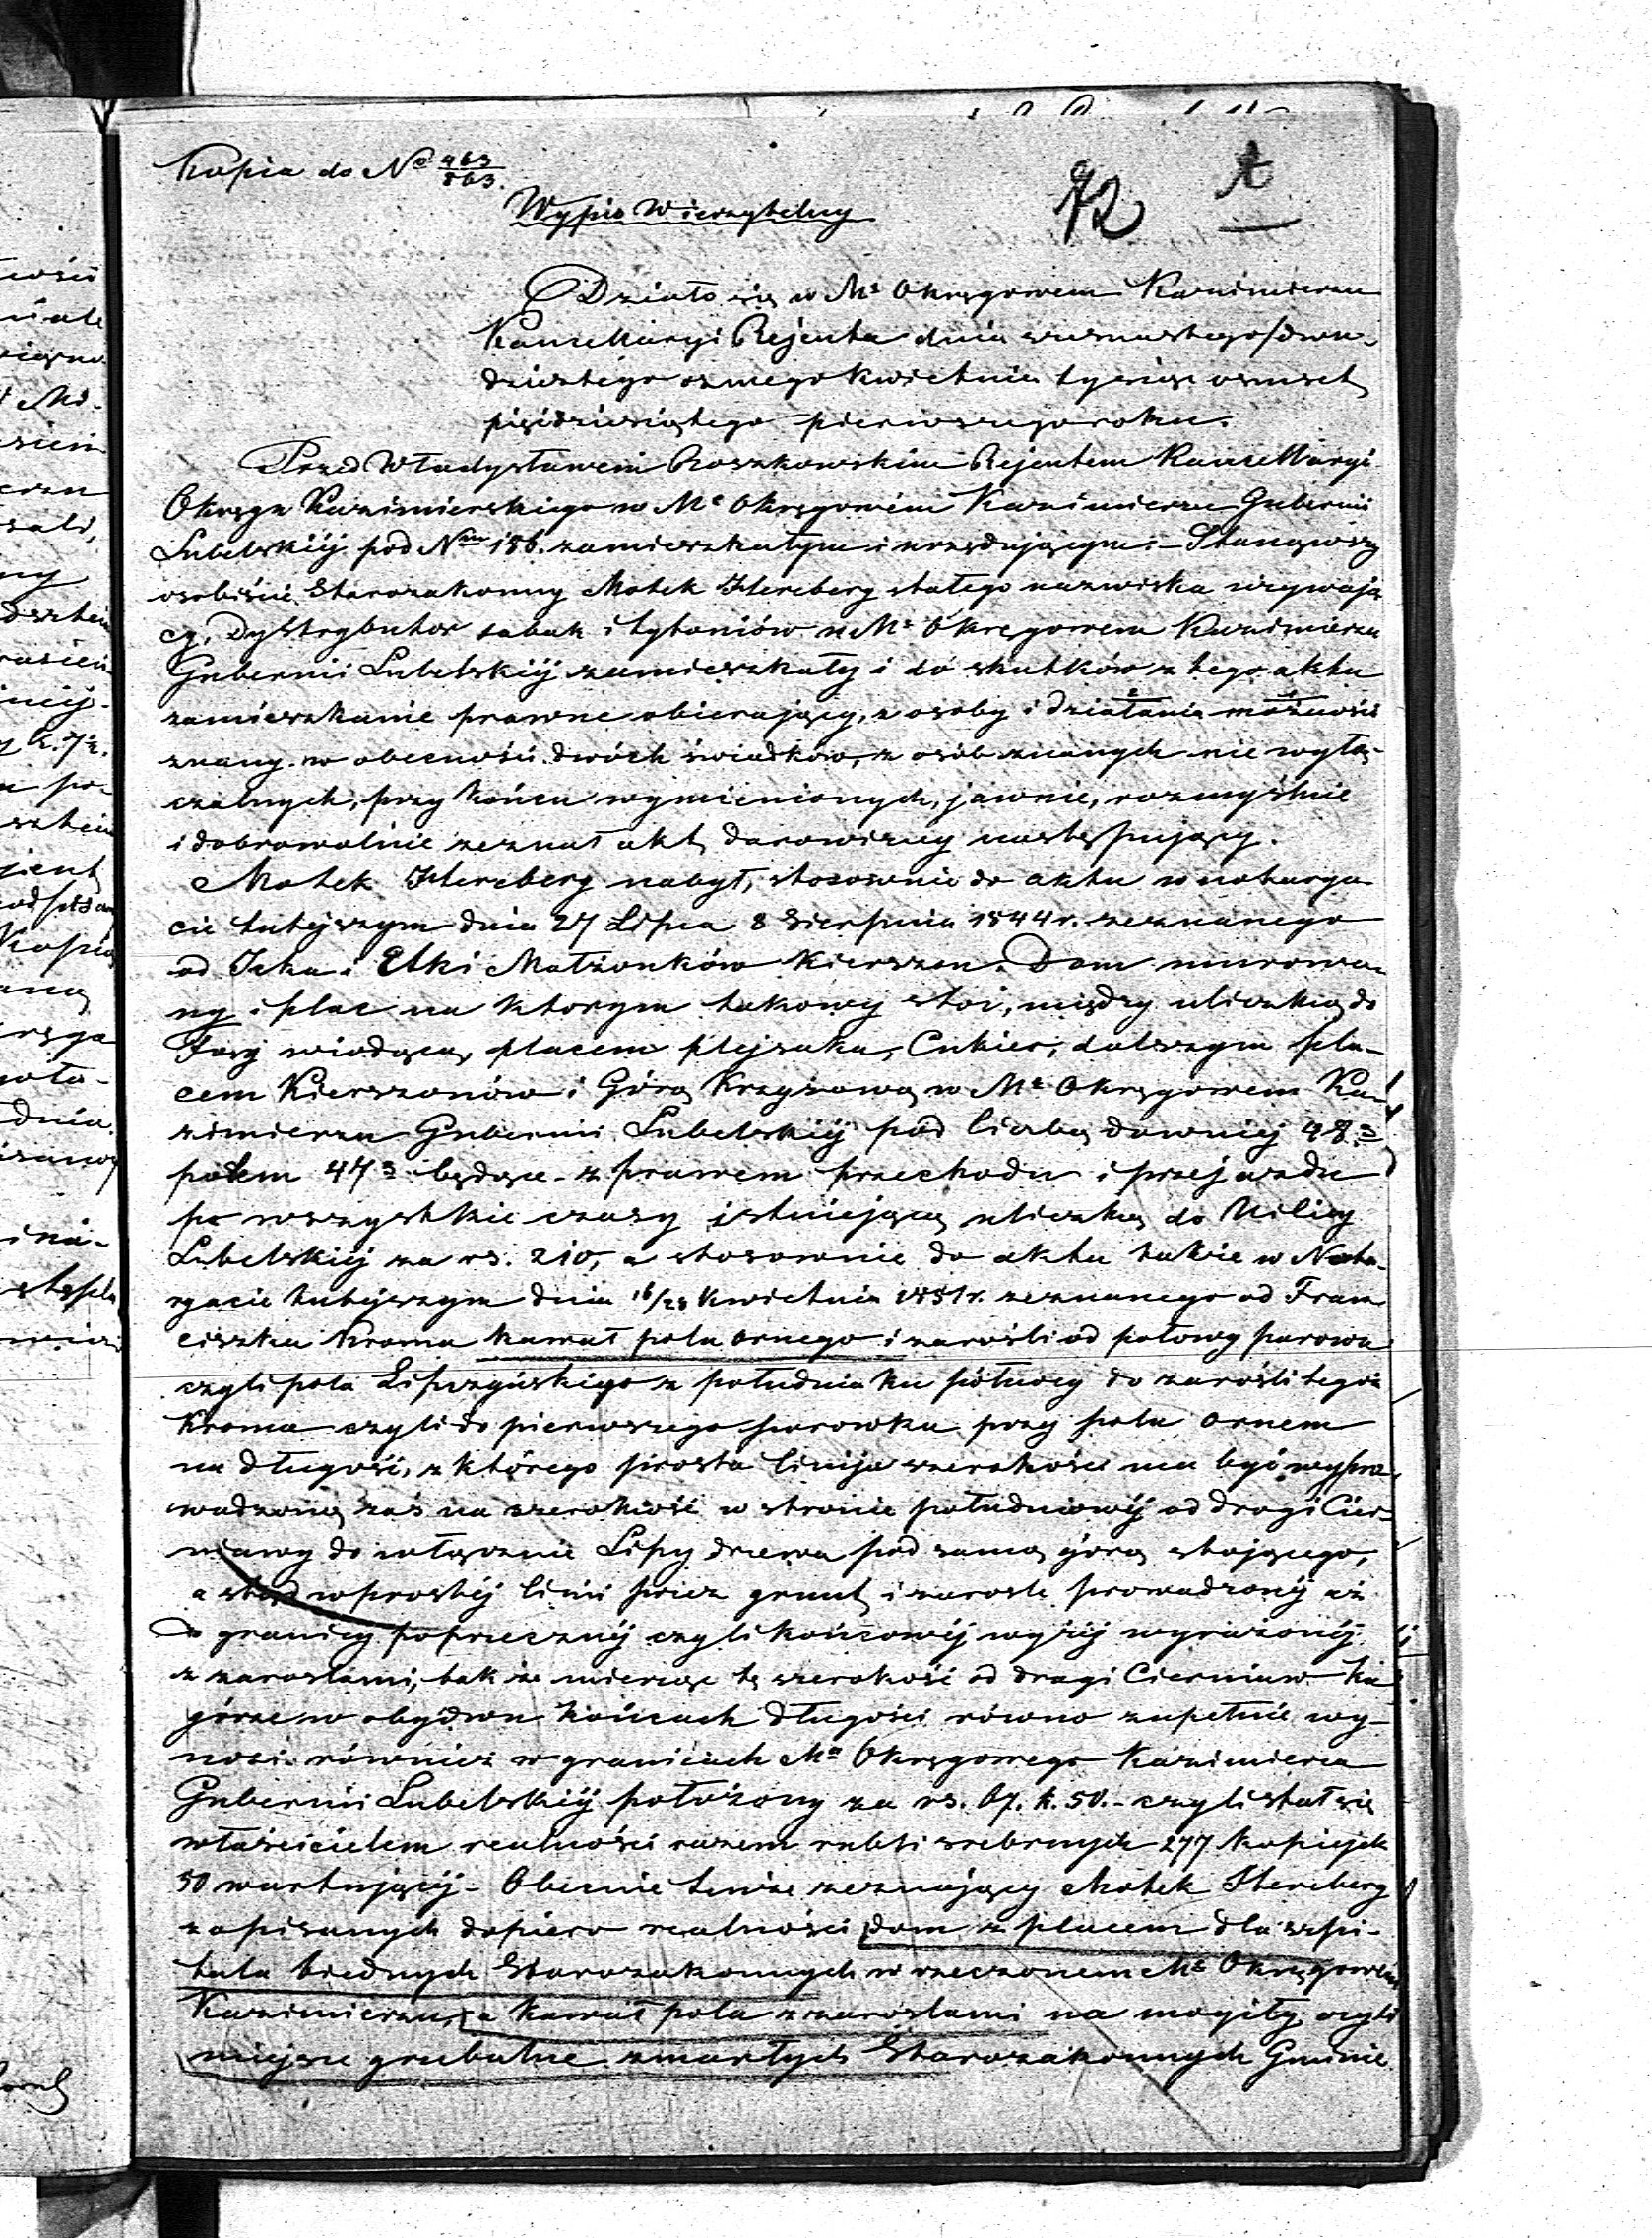 Kopia do No 463/863.
72
Wypis Wierzytelny
Działo się w Me Okręgowem Kazimierzu
Kancellaryi Rejenta dnia szesnastego/dwu-
dziestego osmego Kwietnia tysiąc osmset
pięćdziesiątego pierwszego roku.
Przed Władysławem Roszkowskim Rejentem Kancellaryi
Okręgu Kazimierskiego w Me Okręgowem Kazimierzu Gubernii
Lubelskiéj pod Nem 156. zamieszkałym i urzędującym. – Stanąwszy
osobiście Starozakonny Motek Hercberg stałego nazwiska używają
cy, Dystrybutor tabak i tytoniów w Me Okręgowem Kazimierzu
Gubernii Lubelskiéj zamieszkały i do skutków z tego aktu
zamieszkanie prawne obierający, z osoby i działania możności
znany. w obecności dwóch świadków, z osób znanych nie wyłą-
czalnych, przy końcu wymienionych, jawnie, rozmyślnie
i dobrowolnie zeznał akt darowizny następujący.
Motek Hercberg nabył, stosownie do aktu w notarya-
cie tutéjszym dnia 27 Lipca 8 Sierpnia 1844 r. zeznanego
od Icka i Etki Małżonków Kierszon. Dom murowa-
ny i plac na ktorym takowy stoi, między uliczką do
Fary wiodącą, placem Plejzaka, Cukier, dalszym pla-
cem Kierszonów i Górą Krzyżową w Me Okręgowem Ka-
zimierzu Gubernii Lubelskiéj pod liczbą dawniéj 48
potem 47 będące – z prawem przechodu i przejazdu
po wszystkie czasy istniejącą uliczką do Ulicy
Lubelskiéj za rs. 210, a stosownie do aktu także w Nota-
ryacie tutéjszym dnia 16/28 Kwietnia 1851 r. zeznanego od Fran
ciszka Kroma kawał pola ornego i zarośli od połowy parowa
czyli pola Lipczyńskiego z południa ku północy do zarośli tegoż
Kroma czyli do pierwszego parowka przy polu ornem
na długości, z którego prosta linija szerokości ma być wypro-
wadzoną zaś na szerokość w stronie południowéj od drogi Cier-
niawy do włącznie Lipy drzewa pod samą górą stojącego,
a stąd w prostéj linii przez grunt i zarośle prowadzonéj aż
do granicy poprzecznéj czyli końcowéj wyżéj wyrażonéj
z zaroslami, tak że mierząc tę szerokość od drogi Cierniaw ku
górze w obydwu końcach długości równo zupełnie wy-
nosi. również w granicach Ma Okręgowego Kazimierza
Gubernii Lubelskiéj położony za rs. 67. k. 50. – czyli stał się
właścicielem realności razem rubli srebrnych 277 kopiejek
50 wartującéj – Obecnie tenże zeznający Motek Hercberg
z opisanych dopiero realności dom z placem dla szpi-
tala biednych Starozakonnych w rzeczonem Me Okręgowem
Kazimierzu, a kawał pola z zaroslami na mogiły czyli
miejsce grzebalne zmarłych Starozakonnych Gminie